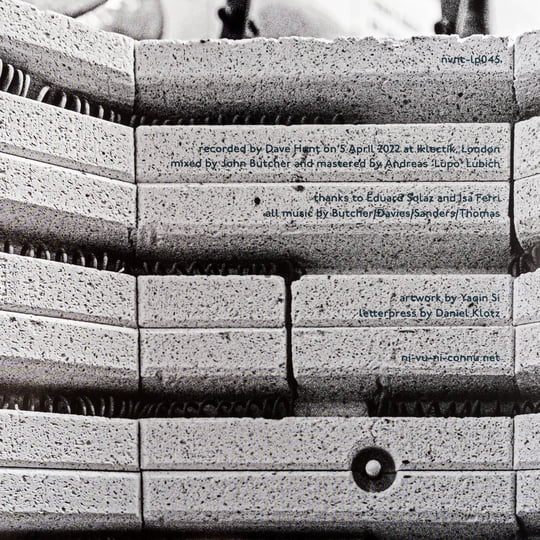 nvnc-lp045.
recorded by Dave Hunt on 5 April 2022 at Iklectik, London
mixed by John Butcher and mastered by Andreas 'Lupo' Lubich
thanks to Eduard Solaz and Isa Ferri
all music by Butcher/Davies/Sanders/Thomas
artwork by Yaqin Si
letterpress by Daniel Klotz
ni-vu-ni-connu.net